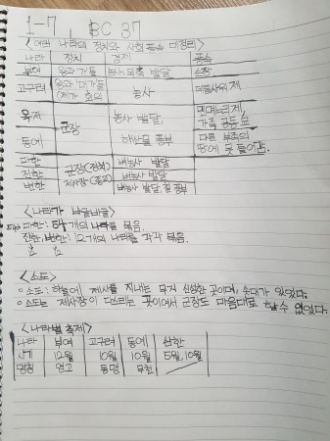 1-7, BC 37
<여러 나라의 정치와 사회 풍속 대정리>
나라 정치 경제 풍속
부여 왕과 가들 발달 순장
고구려 왕과 대가들 제가 회의 농사 데릴사위제
옥저 군장 농사 발달 민며느리제, 가족 공동 묘
동예 해산물 풍부 다른 부족의 땅에 못 들어감.
마한 군장(정치) 벼농사 발달
진한 제사장(종교) 벼농사 발달
변한 벼농사 발달, 철 풍부
<나라가 바글바글>
마한: 54개의 나라를 묶음.
진한, 변한: 12개의 나라를 각각 묶음.
<소도>
○소도: 하늘에 제사를 지내는 무지 신성한 곳이며, 솟대가 있었다.
○소도는 제사장이 다스리는 곳이어서 군장도 마음대로 할 수 없었다.
<나라별 축제>
나라 부여 고구려 동예 삼한
시기 12월 10월 10월 5월, 10월
명칭 영고 동맹 무천